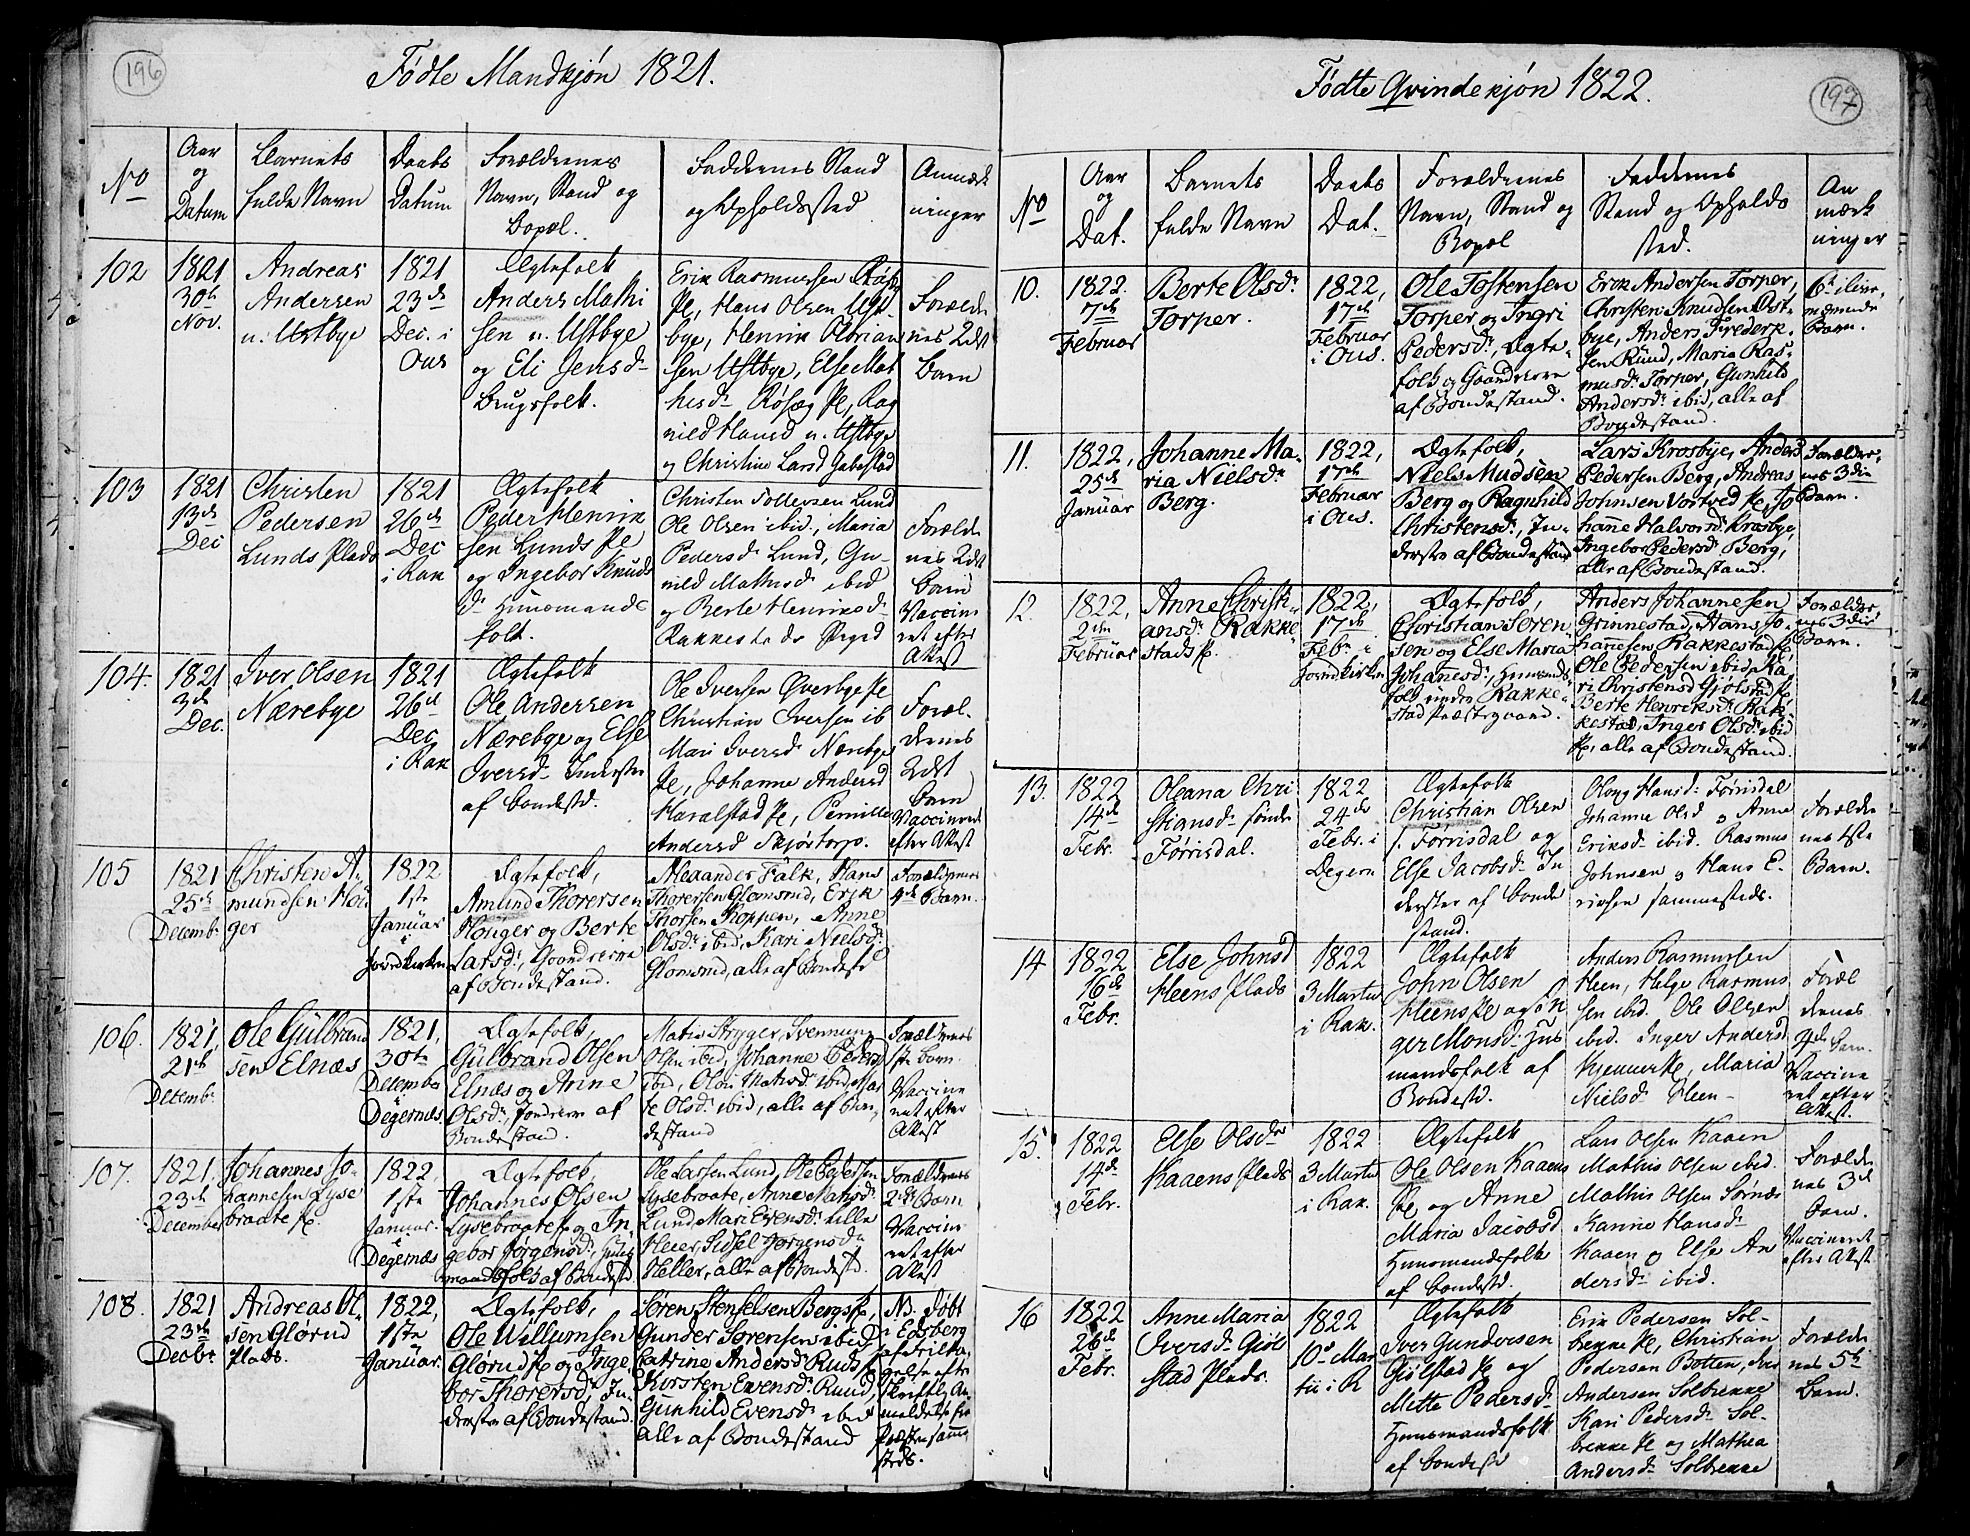 196
Fødte Mandkjøn 1821.
No
Aar
og
Datum
Barnets
fulde Navn
Daabs
Datum
Forældrenes
Navn, Stand og
Bopæl.
Faddernes Stand
og Opholdssted
Anmærk
ninger
102
1821
30te
Nov.
Andreas
Andersen
u. Ustbye
1821
23de
Dec. i
Ous
Ægtefolk
Anders Mathi
sen u. Ustbye
og Eli Jensd
Brugsfolk.
Erik Rasmussen
Pl, Hans Olsen Ust
bye, Henrik Florian
sen Ustbye, Else Mat
hisd Røsæg Pl, Rag
nild Hansd u. Ustbye
og Christine Larsd Gabestad
Foræld
nes 2det
Barn
103
1821
13de
Dec
Christen
Pedersen
Lunds Plads
1821
26de
Dec
i Rak
Ægtefolk
Peder Henrik
sen Lunds Pl
og Ingebor Knuds
d Huusmands
folk.
Christen Tollefsen Lund
Ole Olsen ibid, Maria
Pedersd Lund, Gu
nild Mathisd ibid
og Berte Henriksd
Rakkestad Præged
Foræld
nes 2det
Barn
Vaccine
ret efter
Attest
104.
1821
3de
Dec.
Iver Olsen
Nærebye
1821
26d
Dec
i Rak
Ægtefolk
Ole Andersen
Nærebye og Else
Iversd Inderster
af Bondestd.
Ole Iversen Qverbye Pl
Christian Iversen ib
Mari Iversd Nærebye
Pl, Johanne Andersd
Haralstad Pl, Pernille
Andersd Skjørtorp.
Foræl
drenes
2det
Barn
Vaccineret
efter Attest
105
1821
25de
Decembr
Christen A
mundsen Hou
ger
1822
1ste
Januar
i
hovedkirken
Ægtefolk,
Amund Thoresen
Houger og Berte
Larsd, Gaardeiere
af Bondestand.
Alexander Falk, Hans
Thoresen Glomsrud, Erik
Thorsen Koppen, Anne
Olsdr ibid, Kari Nielsdr
Glomsrud, alle af Bondestd
Forældrenes
4de Barn.
106.
1821,
21de
Decembr
Ole Gülbrand
sen Elnæs
1821,
30te
December
i
Degernæs
Ægtefolk,
Gülbrand Olsen
Elnæs og Anne
Olsdr, af
Bondestand.
Matis Stryger, Svennung
Olsen ibid, Johanne Pedersd
ibid, Olou Matisdr ibid, Mar
te Olsdr ibid, alle af Bon,
destand
Forældrenes
1ste Barn.
Vaccine
ret efter
Attest
107.
1821,
23de
December
Johannes Jo-
hannesen Lyse
braate Pl.
1822,
1ste
Januar.
i
Degernæs
Ægtefolk,
Johannes Olsen
Lysebraate Pl og In
gebor Jørgensdr, Huus
mandsfolk af Bondestd.
Ole Larsen Lund, Ole Pedersen
Lysebraate, Anne Matisdr
Lund, Mari Evensdr Lille
Heier, Sidsel Jørgensdr
Heller, alle af Bondestd.
Forældrenes
2det Barn
Vaccine
ret efter
Attest
108.
1821
23de
Decbr
Andreas Ol-
sen Glørud
Plads.
1822,
1ste
Januar.
Ægtefolk,
Ole Willumsen
Glørud Pl og Inge
bor Thoresdr, In-
derster af Bondestand.
Søren Stenselsen Bergs Pl,
Gunder Sørensen ibid
Catrine Andersdr Ruds Pl
Korsten Evensdr Rund,
Gunhild Evensdr ibid
alle af Bondestand
NB. døbt
i Edsberg
efter
skriftl. An
meldelse fra
Præsten samme
steds.
197
Fødte Qvindekjøn 1822.
No
Aar
og
Dat.
Barnets
fulde Navn
Daabs
Dat.
Forældrenes
Navn, Stand og
Bopæl
Faddernes
Stand og Opholds
sted.
An
mærk
ninger
10.
1822
7de
Februar
Berte Olsdr
Torper.
1822,
17de
Februar
i Ous.
Ole Tostensen
Torper og Ingri
Pedersdr, Ægte-
folk og Gaardeiere
af Bondestand.
Erik Andersen Torper,
Christen Knudsen Ost-
bye, Anders Frederk-
sen Ründ, Maria Ras-
musdr Torper, Gunhild
Andersdr ibid, alle af
Bondestand.
Barn.
11.
1822,
25de
Januar
Johanne Ma-
ria Nielsdr
Berg.
1822,
17de
Februar
i Ous.
Ægtefolk,
Niels Madsen
Berg og Ragnhild
Christensdr, In-
derster af Bondestand
Lars Krosbye, Anders
Pedersen Berg, Andreas
Johnsen Vortved Pl, Jo
hanne Halvorsdr Krosbye,
Ingebor Pedersdr Berg,
alle af Bondestand.
Forældre,
nes 3die
Barn.
12.
1822,
2den
Februar
Anne Christi-
ansdr Rakke-
stads Pl.
1822,
17de
Febr. i
hovedkirken
Ægtefolk,
Christian Søren-
sen og Else Maria
Johanesdr, Huusmands
folk under Rakke-
stad Præstegaard.
Anders Johannesen
Grinnestad, Hans Jo-
hannesen Rakkestad Pl,
Ole Pedersen ibid, Ma
ri Christensd Gjølstad Pl
Berte Henriksdr Rak
kestad, Inger Olsdr ibid
Pl, alle af Bondestand.
Forældre,
nes 3die
Barn.
13.
1822
14de
Febr.
Oleana Chri
stiansdr søndr
Førrisdal.
1822
24de
Febr. i
Degern
Ægtefolk
Christian Olsen
s. Førrisdal og
Else Jacobsdr In
derster af Bonde
stand.
Oloug Hansdr Førrisdal
Johanne Olsd og Anne
Eriksd ibid. Rasmus
Johnsen og Hans E.
richsen sammesteds.
Forælde
nes 1ste
Barn.
14
1822
16de
Febr.
Else Johnsd
Heens Plads
1822
3 Martii
i Rak.
Ægtefolk
John Olsen
Heens Pl og In
ger Monsd Huus
mandsfolk af
Bondestd.
Anders Rasmussen
Heen, Helge Rasmus
sen ibid. Ole Olsen
ibid. Inger Andersd
Kjennerk Pl, Maria
Nielsd Heen
Foræl
drenes
4de Barn.
Vaccine
ret efter
Attest.
15.
1822
14de
Febr.
Else Olsdr
Kaaens Plads
1822
3 Martii
i Rak.
Ægtefolk
Ole Olsen Kaaens
Pl og Anne
Maria Jacobsd
Huusmandsfolk
af Bondestd.
Lars Olsen Kaaen
Mathis Olsen ibid.
Mathis Olsen Sørnæs
Karine Hansdr
Kaaen og Else An
dersdr ibid.
Forælde
nes 3d
Barn.
Vaccineret
efter Attest
16
1822
26de
Febr.
Anne Maria
Iversdr Gjøl
stad Plads.
1822
10de Mar
tii i R
Ægtefolk
Iver Gundersen
Gjølstad Pl og
Mette Pedersd
Huusmandsfolk
af Bondestd
Erik Pedersen Sol-
brekke Pl, Christian
Pedersen Botten,
Andersen Solbrekke
Kari Pedersdr Sol-
brekke Pl og Mathea
Andersdr Solbrekke
Forælde
nes 5te
Barn.